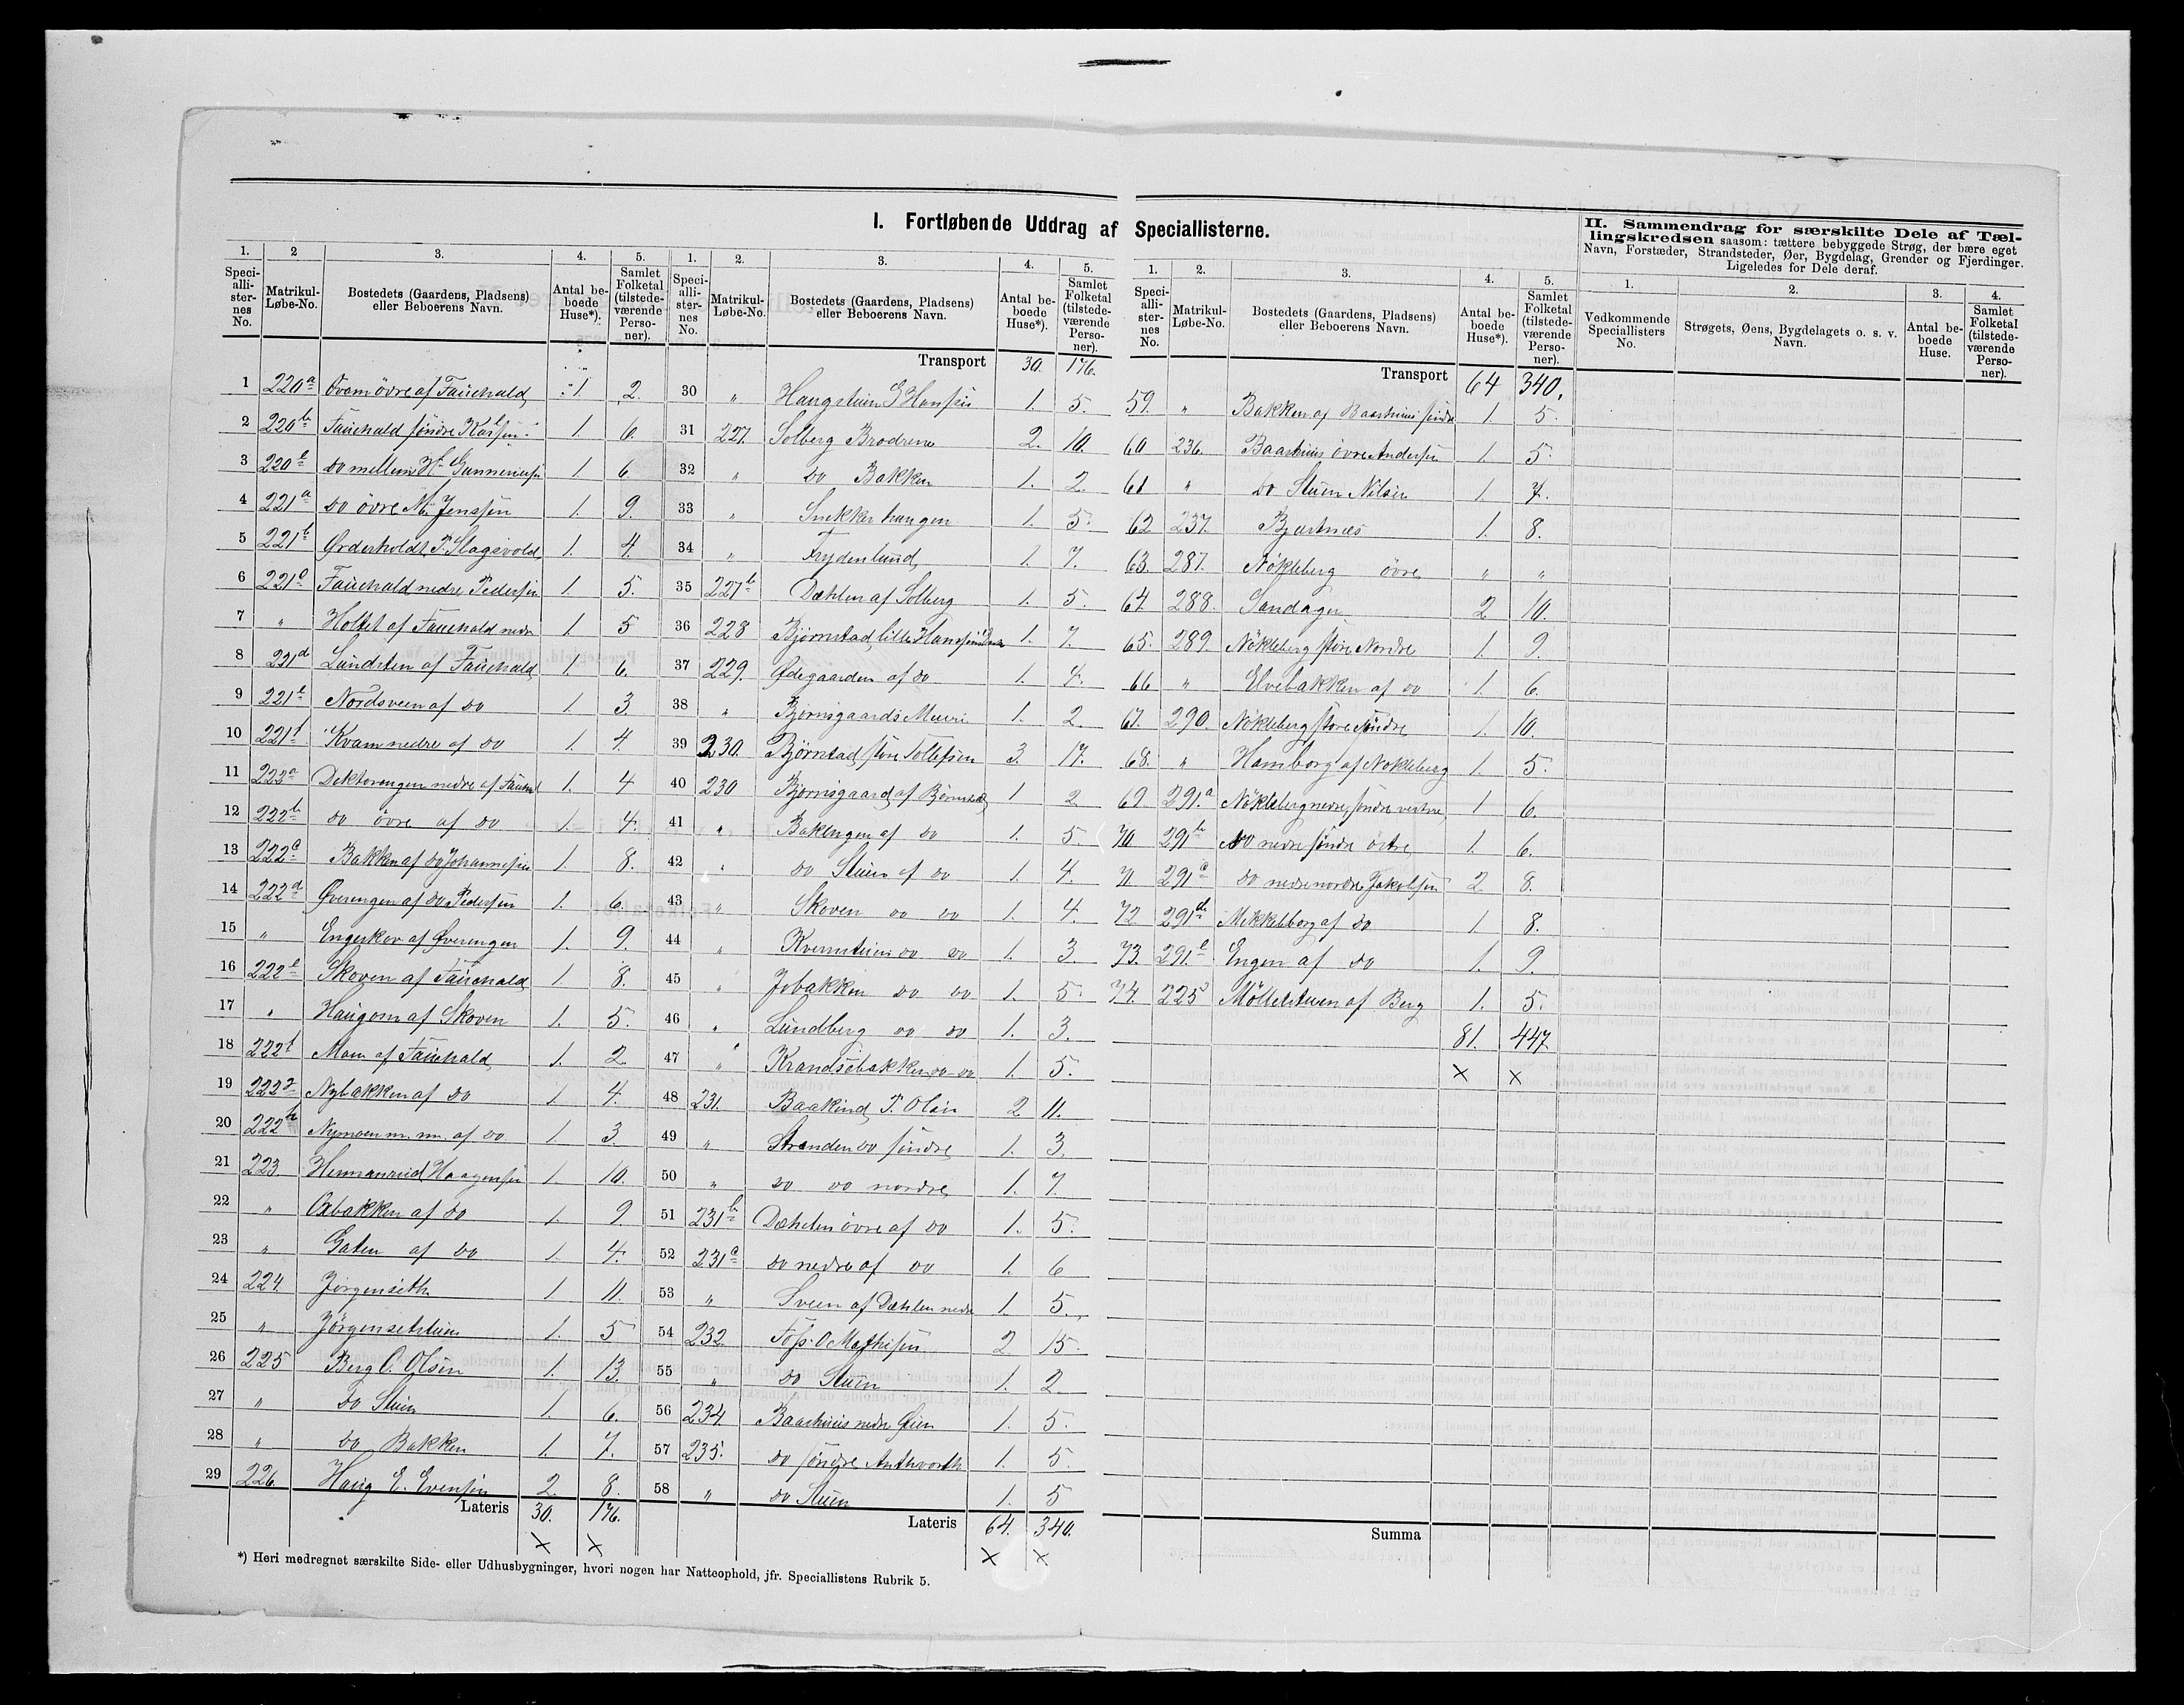 I. Fortløbende Uddrag af Speciallisterne.
1. 2 3. 4. 5.
Speciallisternes No. Matrikul-Løbe-No. Bostedets (Gaardens, Pladsens) eller Beboerens Navn. Antal beboede Huse*). Samlet Folketal (tilstedeværende Personer).
1 220a øvre af Fauchald 1 2.
2 220b Fauchald søndre 1. 6.
3 220c do mellem 1. 6
4 221a do øvre M. Jenssen 1. 9.
5 221b 1. 4.
6 221c Fauchald nedre Pedersen 1. 5.
7 " Holtet af Fauchald nedre 1. 5
8 221d Lundsten af Fauchald 1. 6.
9 221e Nordsveen af do 1. 3.
10 221f Kvam nedre af do 1. 4.
11 222a nedre af 1. 4
12 222b do øvre af do 1. 4.
13 222c Bakken af do Johannesen 1. 8.
14 222d Øverengen af do Pedersen 1. 6.
15 " Engeskov af Øverengen 1. 9.
16 222e Skoven af Fauchald 1. 8.
17 " Haugom af Skoven 1. 5.
18 222f Moen af Fauchald 1. 2
19 222g Nybakken af do 1 4.
20 222h Nymoen m. m. af do 1. 3.
21 223 Haagensen 1. 10.
22 " Oxbakken af do 1. 9
23 " Gaten af do 1. 4.
24 224. Jørgenseth 1 11.
25 " Jørgensetstuen 1. 5
26 225 Berg O. Olsen 1. 13.
27 " do Stuen 1. 6.
28 " do Bakken 1. 7.
29 226. Haug E. Evensen 2. 8.
Lateris 30. 176.
1. 2. 3. 4. 5.
Speciallisternes No. Matrikul-Løbe-No. Bostedets (Gaardens, Pladsens) eller Beboerens Navn. Antal beboede Huse*). Samlet Folketal (tilstedeværende Personer).
Transport 30. 176.
30 " Haugstuen 1. 5.
31 227. Solberg Brødrene 2. 10.
32 " do Bakken 1. 2.
33 " Snekkerhaugen 1. 5.
34 " Frydenlund 1. 7.
35 227b Dæhlen af Solberg 1. 5.
36 228 Bjørnstad lille 1. 7.
37 229. Ødegaarden af do 1. 4.
38 " 1. 2.
39 230. Bjørnstad store Tollefsen 3. 17.
40 230 Bjørnsgaard af Bjørnstad 1 2
41 " Bakengen af do 1. 5.
42 " do Stuen af do 1. 4.
43 " Skoven do do 1. 4.
44 " Kvernstuen do do 1. 3.
45 " Jobakken do do 1. 5.
46 " Lundberg do do 1. 3.
47 " do do 1. 5.
48 231. P. Olsen 2 11.
49 " Stranden do søndre 1. 3.
50 " do do nordre 1. 7.
51 231b Dæhlen øvre af do 1. 5.
52 231c do nedre af do 1. 6
53 " Sveen af Dæhlen nedre 1. 5.
54 232. Foss O. Mathisen 2 15.
55 " do Stuen 1. 2
56 234. Baashuus nedre 1. 5.
57 235. do søndre 1. 5.
58 " do Stuen 1. 5
Lateris 64. 340.
1. 2. 3. 4. 5.
Speciallisternes No. Matrikul-Løbe-No. Bostedets (Gaardens, Pladsens) eller Beboerens Navn. Antal beboede Huse*). Samlet Folketal (tilstedeværende Personer).
Transport 64 340.
59. " Bakken af Baashuus søndre 1. 5.
60 236. Baashuus øvre Andersen 1. 5.
61 " do Stuen Nilsen 1 7.
62 237. Bjertnes 1. 8.
63. 287. Nøkleberg øvre " "
64. 288. Sandager 2 10.
65. 289. Nøkleberg store Nordre 1. 9.
66 " Elvebakken af do 1. 6.
67. 290. Nøkleberg store søndre 1. 10.
68. " Hamborg af Nøkleberg 1. 5.
69 291.a Nøkleberg nedre søndre vestre 1 6.
70 291b do nedre søndre østre 1. 6.
71 291c do nedre nordre Jakobsen 2 8.
72 291d Mikkelborg af do 1 8.
73. 291.e Engen af do 1. 9.
74. 225 Møllestuen af Berg 1. 5.
81. 447
Summa
II. Sammendrag for særskilte Dele af Tællingskredsen saasom: tættere bebyggede Strøg, der bære eget Navn, Forstæder, Strandsteder, Øer, Bygdelag, Grender og Fjerdinger. Ligeledes for Dele deraf.
1. 2. 3. 4.
Vedkommende Speciallisters No. Strøgets, Øens, Bygdelagets o. s. v. Navn. Antal beboede Huse. Samlet Folketal (tilstedeværende Personer).
*) Heri medregnet særskilte Side- eller Udhusbygninger, hvori nogen har Natteophold, jfr. Speciallistens Rubrik 5.